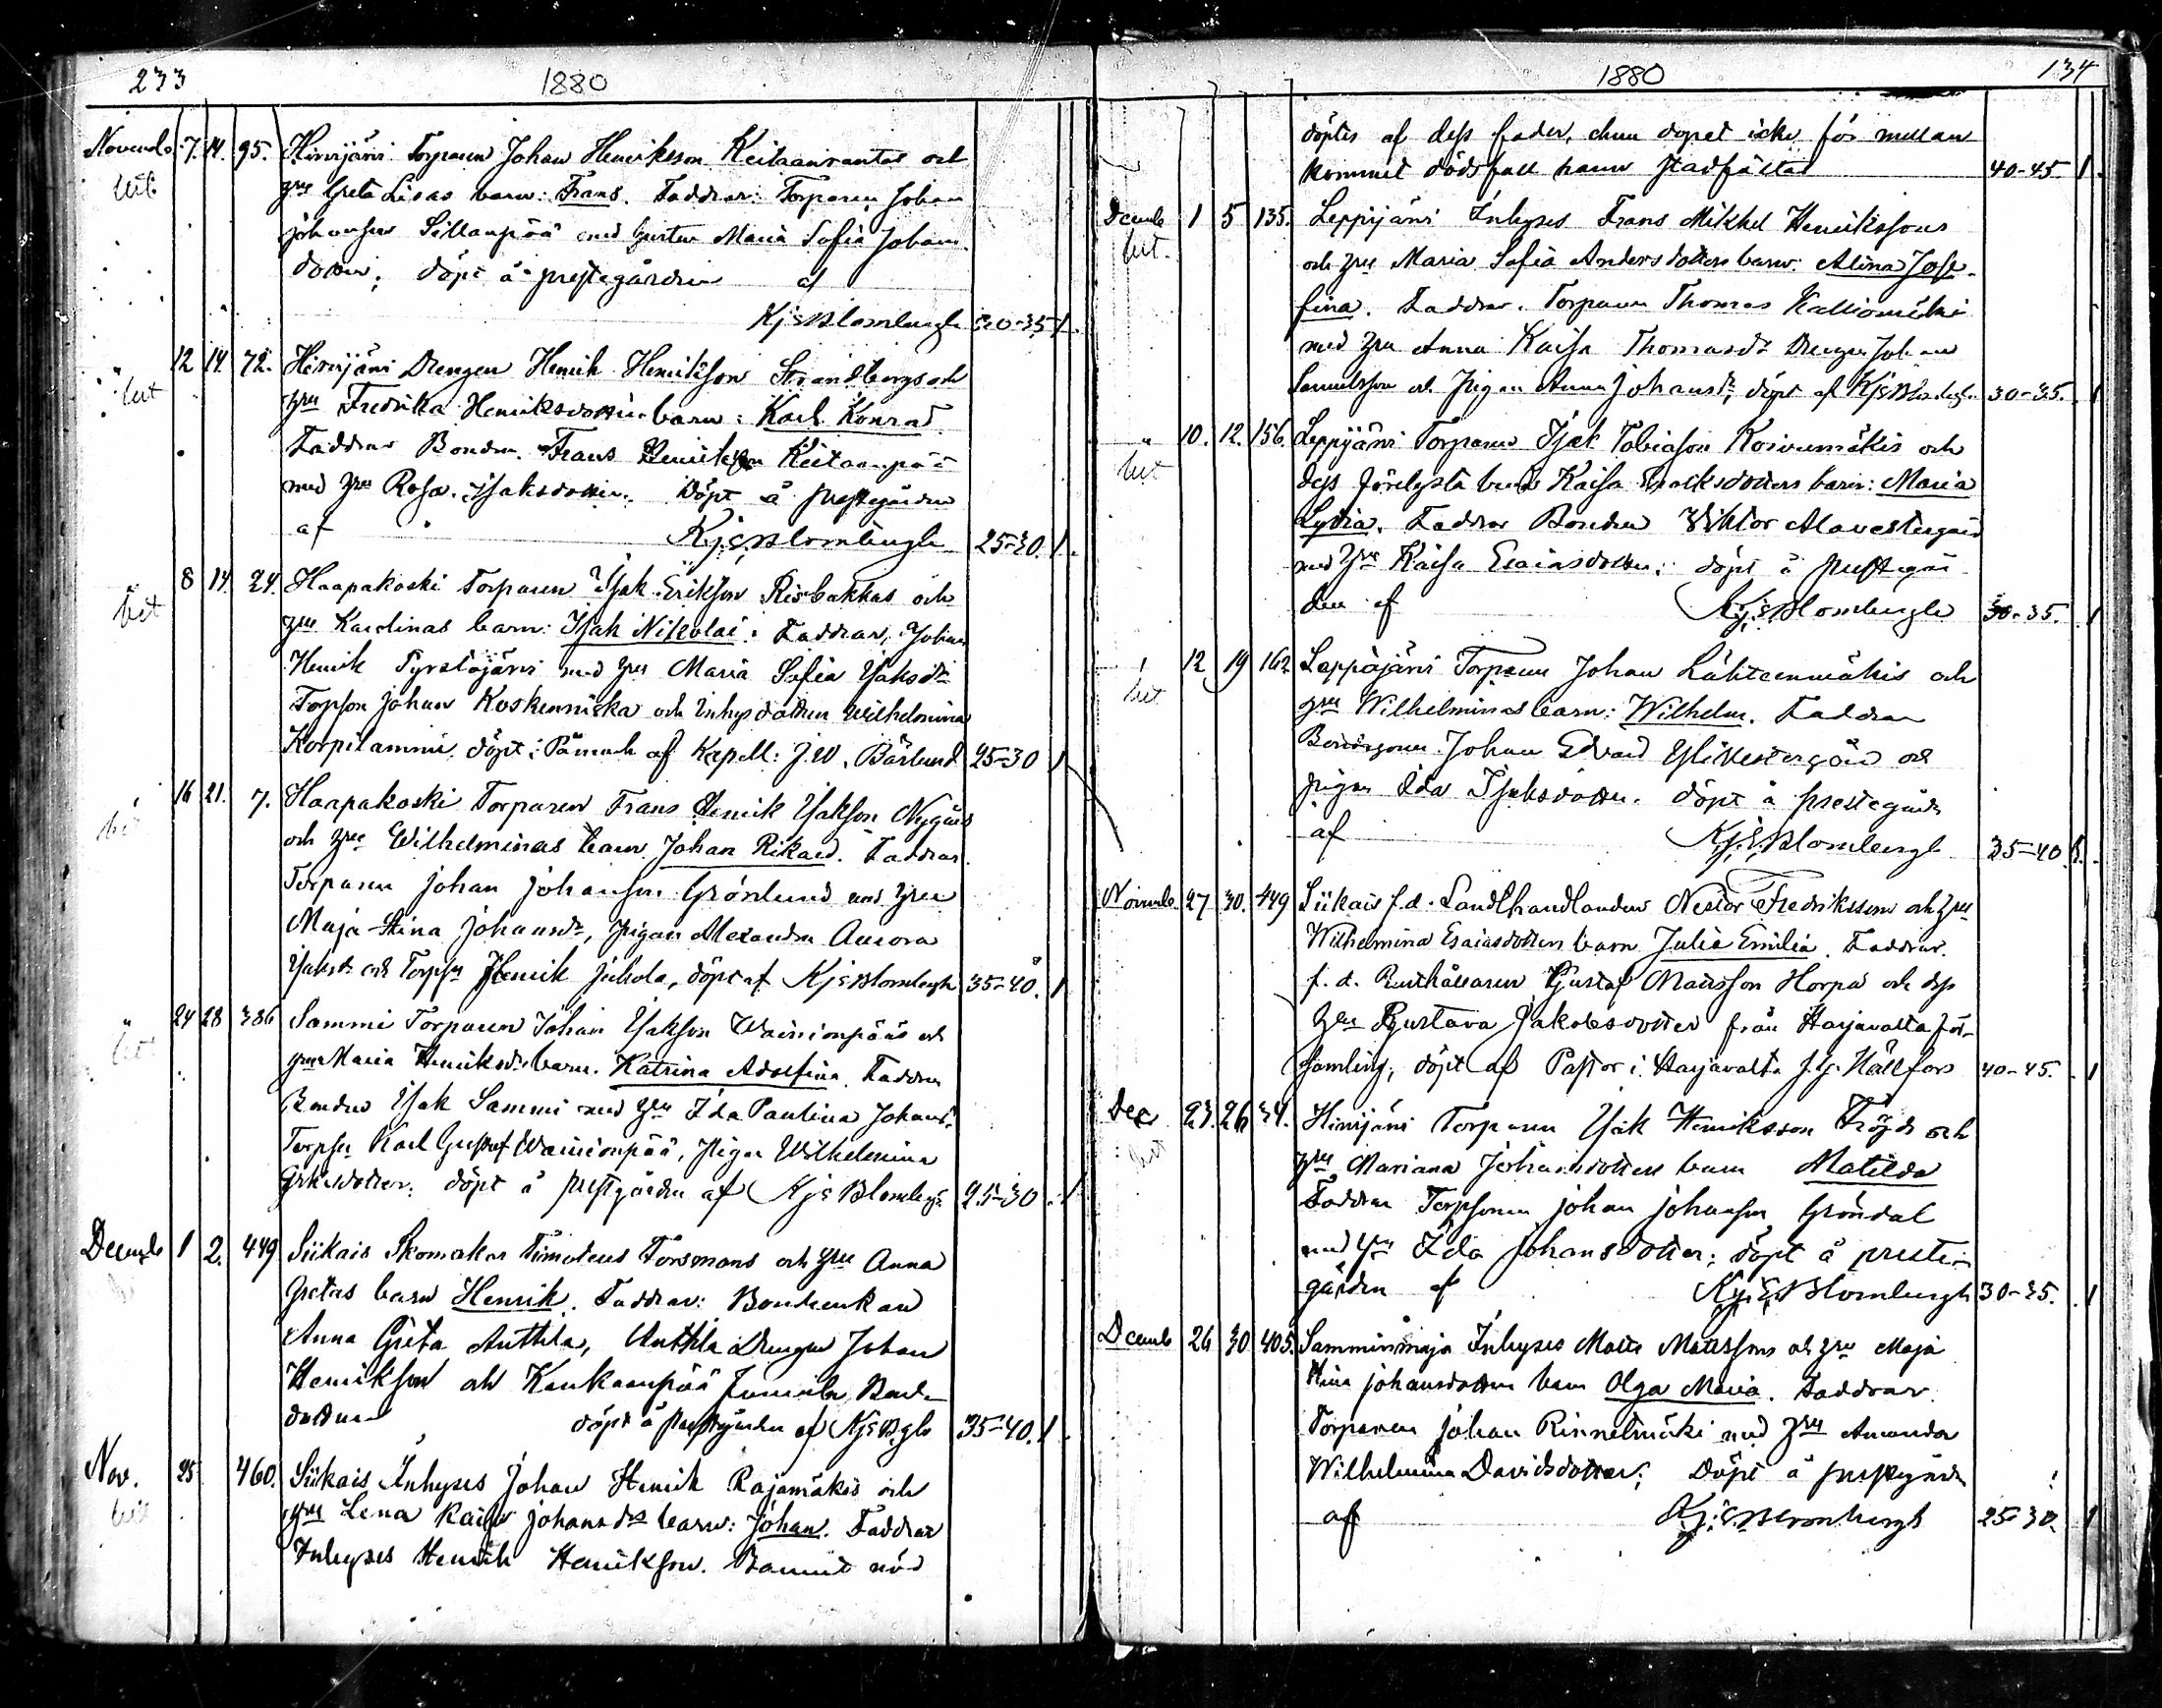 233
1880
Novemb. 7. 14. 95. Hirvijärvi Torparen Johan Henriksson Keitaanrantas och
hru Greta Lisas barn: Frans. Faddrar: Torparen Johan
Johansson Sillanpää med hustru Maria Sofia Johans-
dotter; döpt å prestegården af
Kj: E: Blombergh 30-35 1.
" 12 14. 72. Hirvijärvi Drengen Henrik Henriksson Strandbergs och
hru Fredrika Henriksdotters barn: Karl Konrad
Faddrar Bonden Frans Henriksson Keitaanpää
med hru Rosa Isaksdotter. Döpt å prestegården
af Kj: E: Blombergh 25-30. 1.
8 14. 24. Haapakoski Torparen Isak Eriksson Risbakkas och
hru Karolinas barn: Isak Nikolai. Faddrar, Johan
Henrik Tyrstöjärvi med hru Maria Sofia Isaksdr
Torpson Johan Koskenniska och Inhysdottern Wilhelmina
Korpilammi, döpt i Påmark af Kapell: J. W. Bärlund 25-30 1
16 21. 7. Haapakoski Torparen Frans Henrik Isaksson Nygårds
och hru Wilhelminas barn Johan Rikard. Faddrar.
Torparen Johan Johansson Grönlund med hru
Maja Stina Johansdr, Pigan Alexandra Aurora
Isaksdr och Torpsn Henrik Juhola, döpt af Kj: E: Blombergh 35-40. 1
" 24 28 386 Sammi Torparen Johan Isaksson Wainionpääs och
hru Maria Henriksdrs barn. Katrina Adolfina. Faddrar
Bonden Isak Sammi med hru Ida Paulina Johansdr
Torpsn Karl Gustaf Wainionpää, Pigan Wilhelmina
döpt å prestgården af Kj: E: Blombergh 25-30 1
Decemb 1 2. 449 Siikais Skomakar Timoteus Forsmans och hru Anna
Gretas barn Henrik. Faddrar: Bondenkan
Anna Greta Anttila, Anttila Drengen Johan
Henriksson och Kankaanpää
dotter döpt å prestgården af Kj: E: Bgh 35-40. 1
Nov. 25 460. Siikais Inhyses Johan Henrik Rajamäkis och
hru Lena Kaisa Johansdrs barn: Johan. Faddrar
Inhyses Henrik Henriksson. Barnet nöd
1880
134
döptes af dess fader, men dopet icke för mellan
kommet dödsfall hann stadfästas 40-45. 1.
Decemb 1 5 135. Leppijärvi Inhyses Frans Mikkel Henrikssons
och hru Maria Sofia Andersdotters barn: Alina Jose-
fina. Faddrar. Torparen Thomas Kalliomäki
med hru Anna Kaisa Thomasdr Drengen Johan
Samuelsson och Pigan Anna Johansdr, döpt af Kj: E: Blombergh 30-35. 1
" 10. 12. 156. Leppijärvi Torparen Isak Tobiasson Koivumäkis och
dess förelysta brud Kaisa Isaksdotters barn: Maria
Lydia. Faddrar Bonden Viktor Alavestergård
med hru Kaisa Esaiasdotter: döpt å prestegår
den af Kj: E: Blombergh 30-35. 1
12 19 162 Leppijärvi Torparen Johan Lähteenmäkis och
hru Wilhelminas barn: Wilhelm. Faddrar
Bondsonen Johan Edvard Ylivestergård och
pigan Ida Isaksdotter. döpt å prestegård
af Kj: E: Blombergh 35-40 1.
Novemb. 27 30. 449 Siikais f. d. Landthandlanden Nestor Fredriksson och hru
Wilhelmina Esaiasdotters barn Julia Emilia. Faddrar.
f. d. Rusthållaren Gustaf Mattsson Horpa och dess
hru Gustava Jakobsdotter från Harjavalta för-
samling, döpt af Pastor i Harjavalta J. G. Hällfors 40-45. 1
Dec 23. 26 34. Hirvijärvi Torparen Isak Henriksson Fröyds och
hru Mariana Johansdotters barn Matilda
Faddrar Torpsonen Johan Johansson Gröndal
med hru Ida Johansdotter; döpt å preste-
gården af Kj: E: Blombergh 30-35. 1
Decemb 26 30 405. Samminmaja Inhyses Matts Mattssons och hru Maja
Stina Johansdotters barn Olga Maria. Faddrar
Torparen Johan Rinnelmäki med hru Amanda
Wilhelmina Davidsdotter; Döpt å prestgården
af Kj: E: Blombergh 25-30. 1